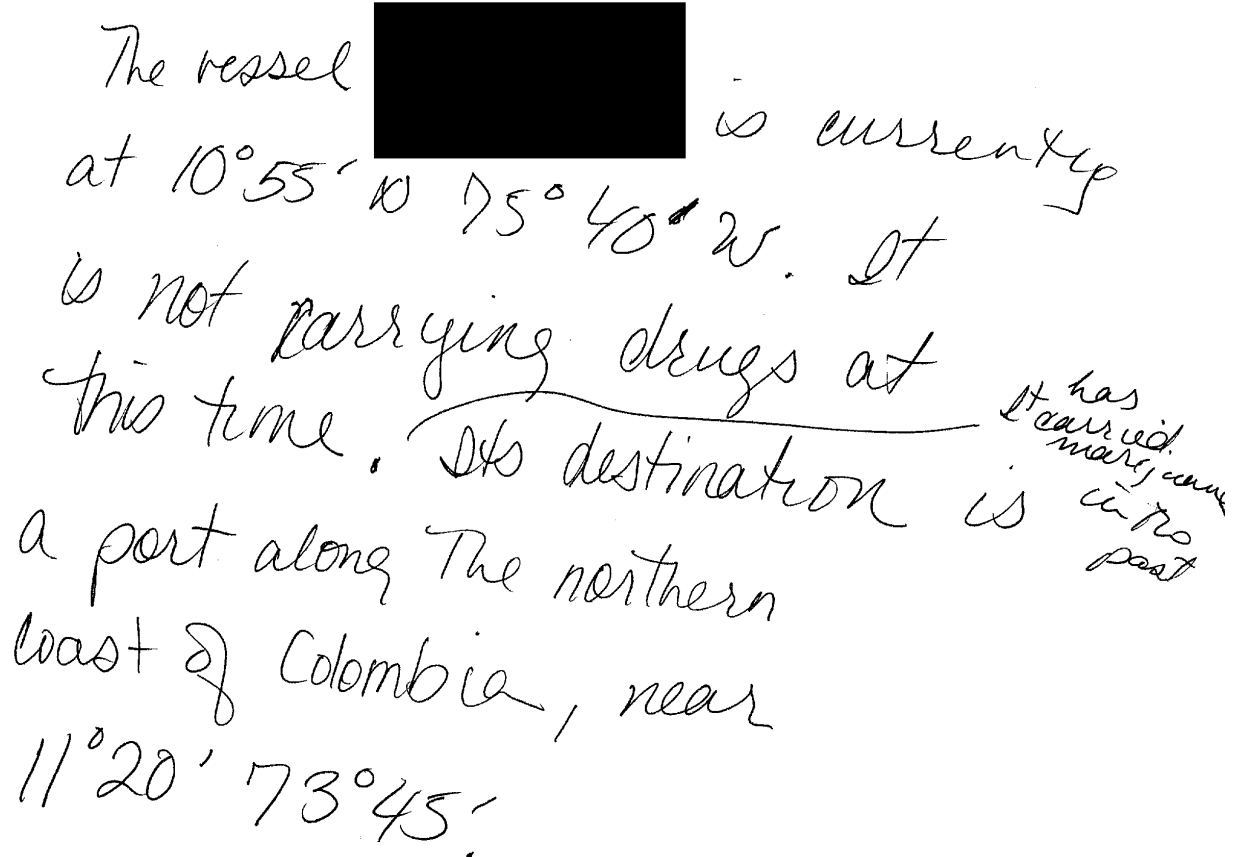 The vessel is currently
at 10°55′ N 75°40′ W. It
is not carrying drugs at
this time. Its destination is
It has
carried
in the
past
a port along The northern
coast of Colombia, near
11°20′ 73°45′.